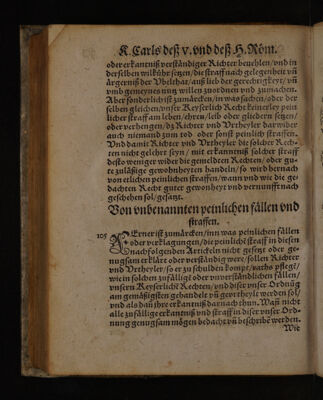 K. Carls deß v. vnd deß H. Röm.
oder erkantniß verständiger Richter beuehlen/ vnd in
derselben wilkühr setzen/ die straff nach gelegenheit vñ
ärgerniß der Vbelthat/ auß lieb der gerechtigkeyt/ vñ
vmb gemeynes nutz willen zuordnen vnd zumachen.
Aber sonderlich ist zumercken/ in was sachen/ oder der
selben gleichen/ vnser Keyserlich Recht keinerley pein
licher straff am leben/ ehren/ leib oder gliedern setzen/
oder verhengen/ dz Richter vnd Vrtheyler darwider
auch niemand zum tod oder sonst peinlich straffen.
Vnd damit Richter vnd Vrtheyler die solcher Rech-
ten nicht gelehrt seyn/ mit erkantniß solcher straff
desto weniger wider die gemeldten Rechten/ oder gu-
te zuläßige gewonheyten handeln/ so wird hernach
von etlichen peinlichen straffen/ wann vnd wie die ge-
dachten Recht guter gewonheyt vnd vernunfft nach
geschehen sol/ gesatzt.
Von vnbenannten peinlichen fällen vnd
straffen.
105 FErner ist zumärcken/ inn was peinlichen fällen
oder verklagungen/ die peinlich straff in diesen
nachfolgenden Artickeln nicht gesetzt oder ge-
nugsam erkläre oder verständig were/ sollen Richter
vnd Vrtheyler/ so es zu schulden kompt/ rahts pflegē/
wie in solchen zufälligē oder vnverständlichen fällen/
vnsern Keyserlicht Rechten/ vnd diser vnser Ordnūg
am gemäßigsten gehandelt vñ georttheyle werden sol/
vnd als dañ ihre erkantniß darnach thun. Wañ nicht
alle zufällige erkantniß vnd straff in diser vnser Ord-
nung genugsam mögen bedacht vñ beschribē werden.
Wie